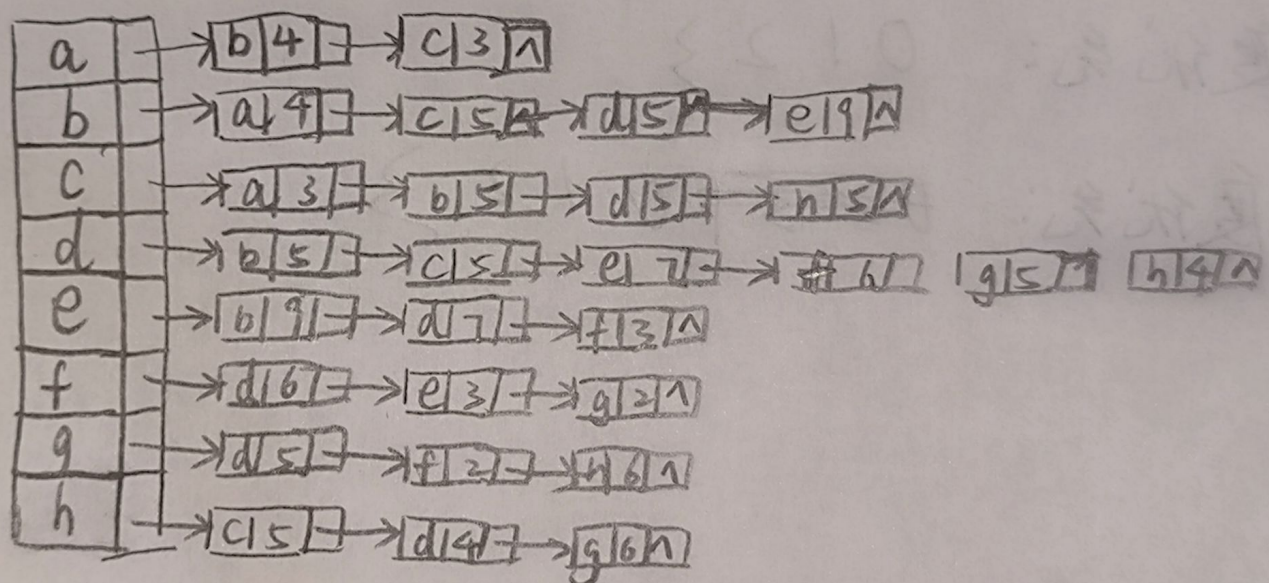 a → b|4| → c|3|∧
b → a|4| → c|5|∧ → d|5|∧ → e|9|∧
c → a|3| → b|5| → d|5| → h|5|∧
d → b|5| → c|5| → e|7| → f|6| g|5| h|4|∧
e → b|9| → d|7| → f|3|∧
f → d|6| → e|3| → g|2|∧
g → d|5| → f|2| → h|6|∧
h → c|5| → d|4| → g|6|∧